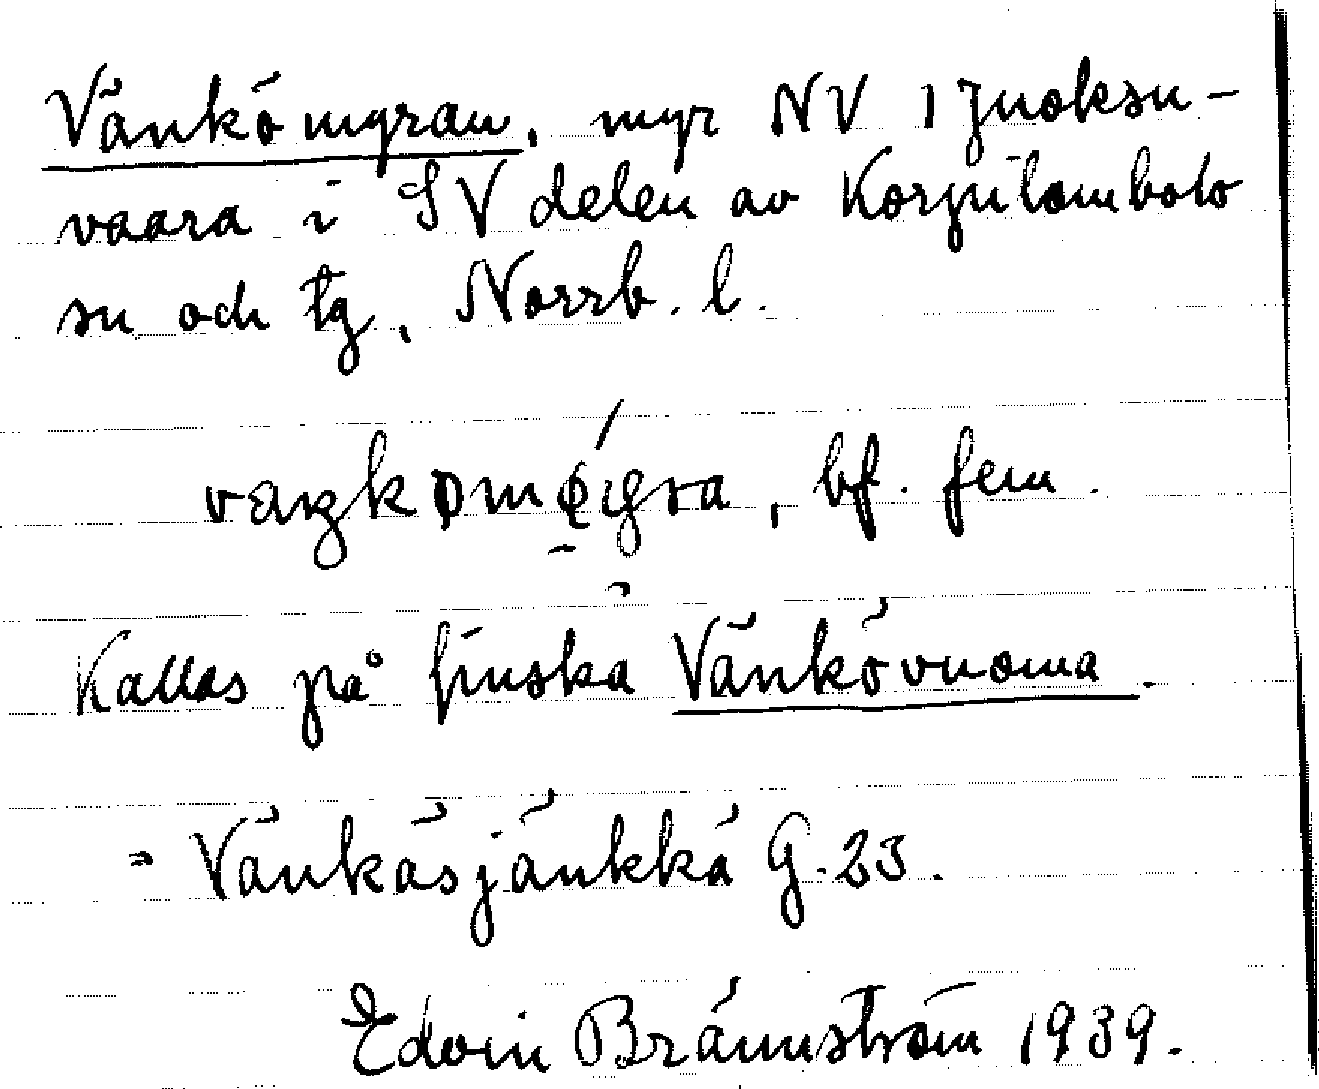 Vänkömyran, myr NV i Juoksu-
vaara i SV delen av Korpilombolo
sn och tg, Norrb. l.
bf. fem.
Kallas på finska Vänkövuoma.
= Vänkäsjänkkä G.23.
Edvin Brännström 1939.